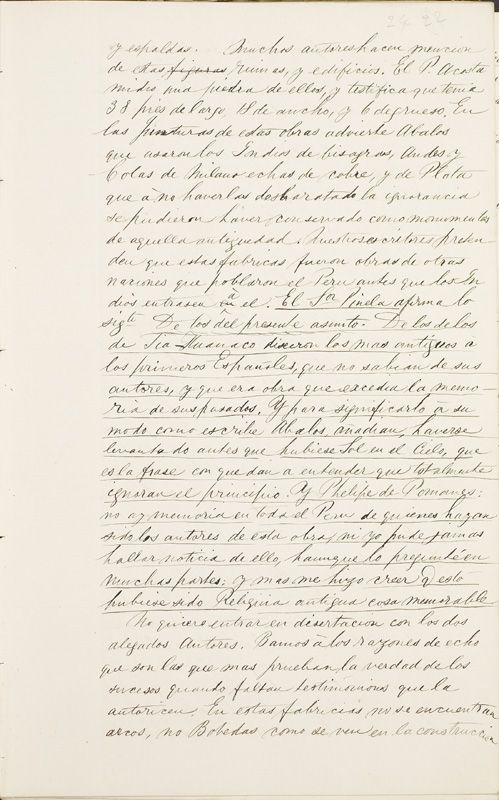 24 22
y espaldas. Muchos autores hacen mencion
de estas figuras ruinas, y edificios. El P. Acosta
midió una piedra de ellos, y testifica que tenia
38 pies de largo, 18 de ancho, y 6 de grueso. En
las junturas de estas obras advierte Abalos
que usaron los Indios de bisagras, Andes y
Colas de Milano echas de cobre, y de Plata
que á no haverlas desbaratado la ignorancia
se pudieron haver conservado como monumentos
de aquella antiguedad. Nuestros escritores preten
den que estas fabricas fueron obras de otras
naciones que poblaron el Peru antes que los In
dios entrasen en á el. El Sor Pinelo afirma lo
sigte De los del presente asunto. De los de los
de Tia-Huanaco dixeron los mas antiguos a
los primeros Españoles, que no sabian de sus
autores, y que era obra que excedia la memo-
ria de sus pasados. Y para significarlo á su
modo como escribe Abalos, anadian, haverse
levantado antes que hubiese Sol en el Cielo, que
es la frase con que dan a entender que totalmente
ignoran el principio. Y Phelipe de Pomanes:
no ay memoria en toda el Peru de quienes hayan
sido los autores de esta obra, ni yo pude jamas
hallar noticia de ello, haunque lo pregunté en
muchas partes: y mas me hizo creer q esto
hubiese sido Religina antigua cosa memorable
No quiero entrar en disertacion con los dos
alegados Autores. Bamos á los razones de echo
que son las que mas prueban la verdad de los
sucesos quando faltan testimonios que la
autoricen. En estas fabricas no se encuentran
arcos, no Bobedas como se ven en la construccion